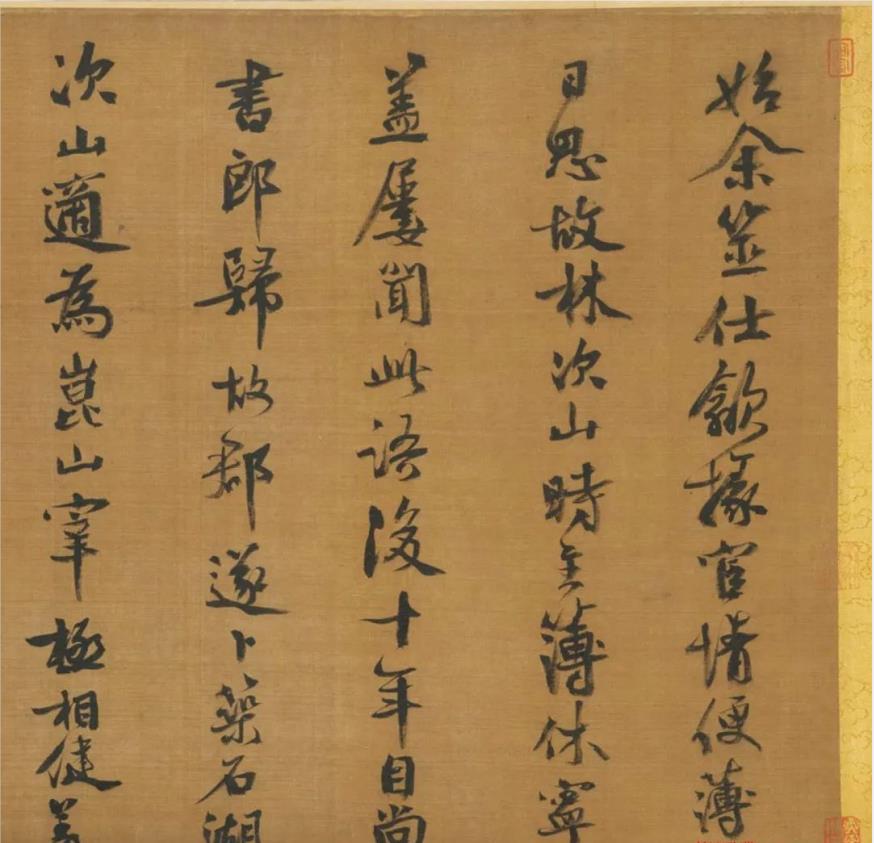 始余筮仕歙掾宦情便薄
日思故林次山時主簿休寧
蓋屢聞此語後十年自尚
書郎歸故郡遂卜築石湖
次山適為崑山宰極相健羡